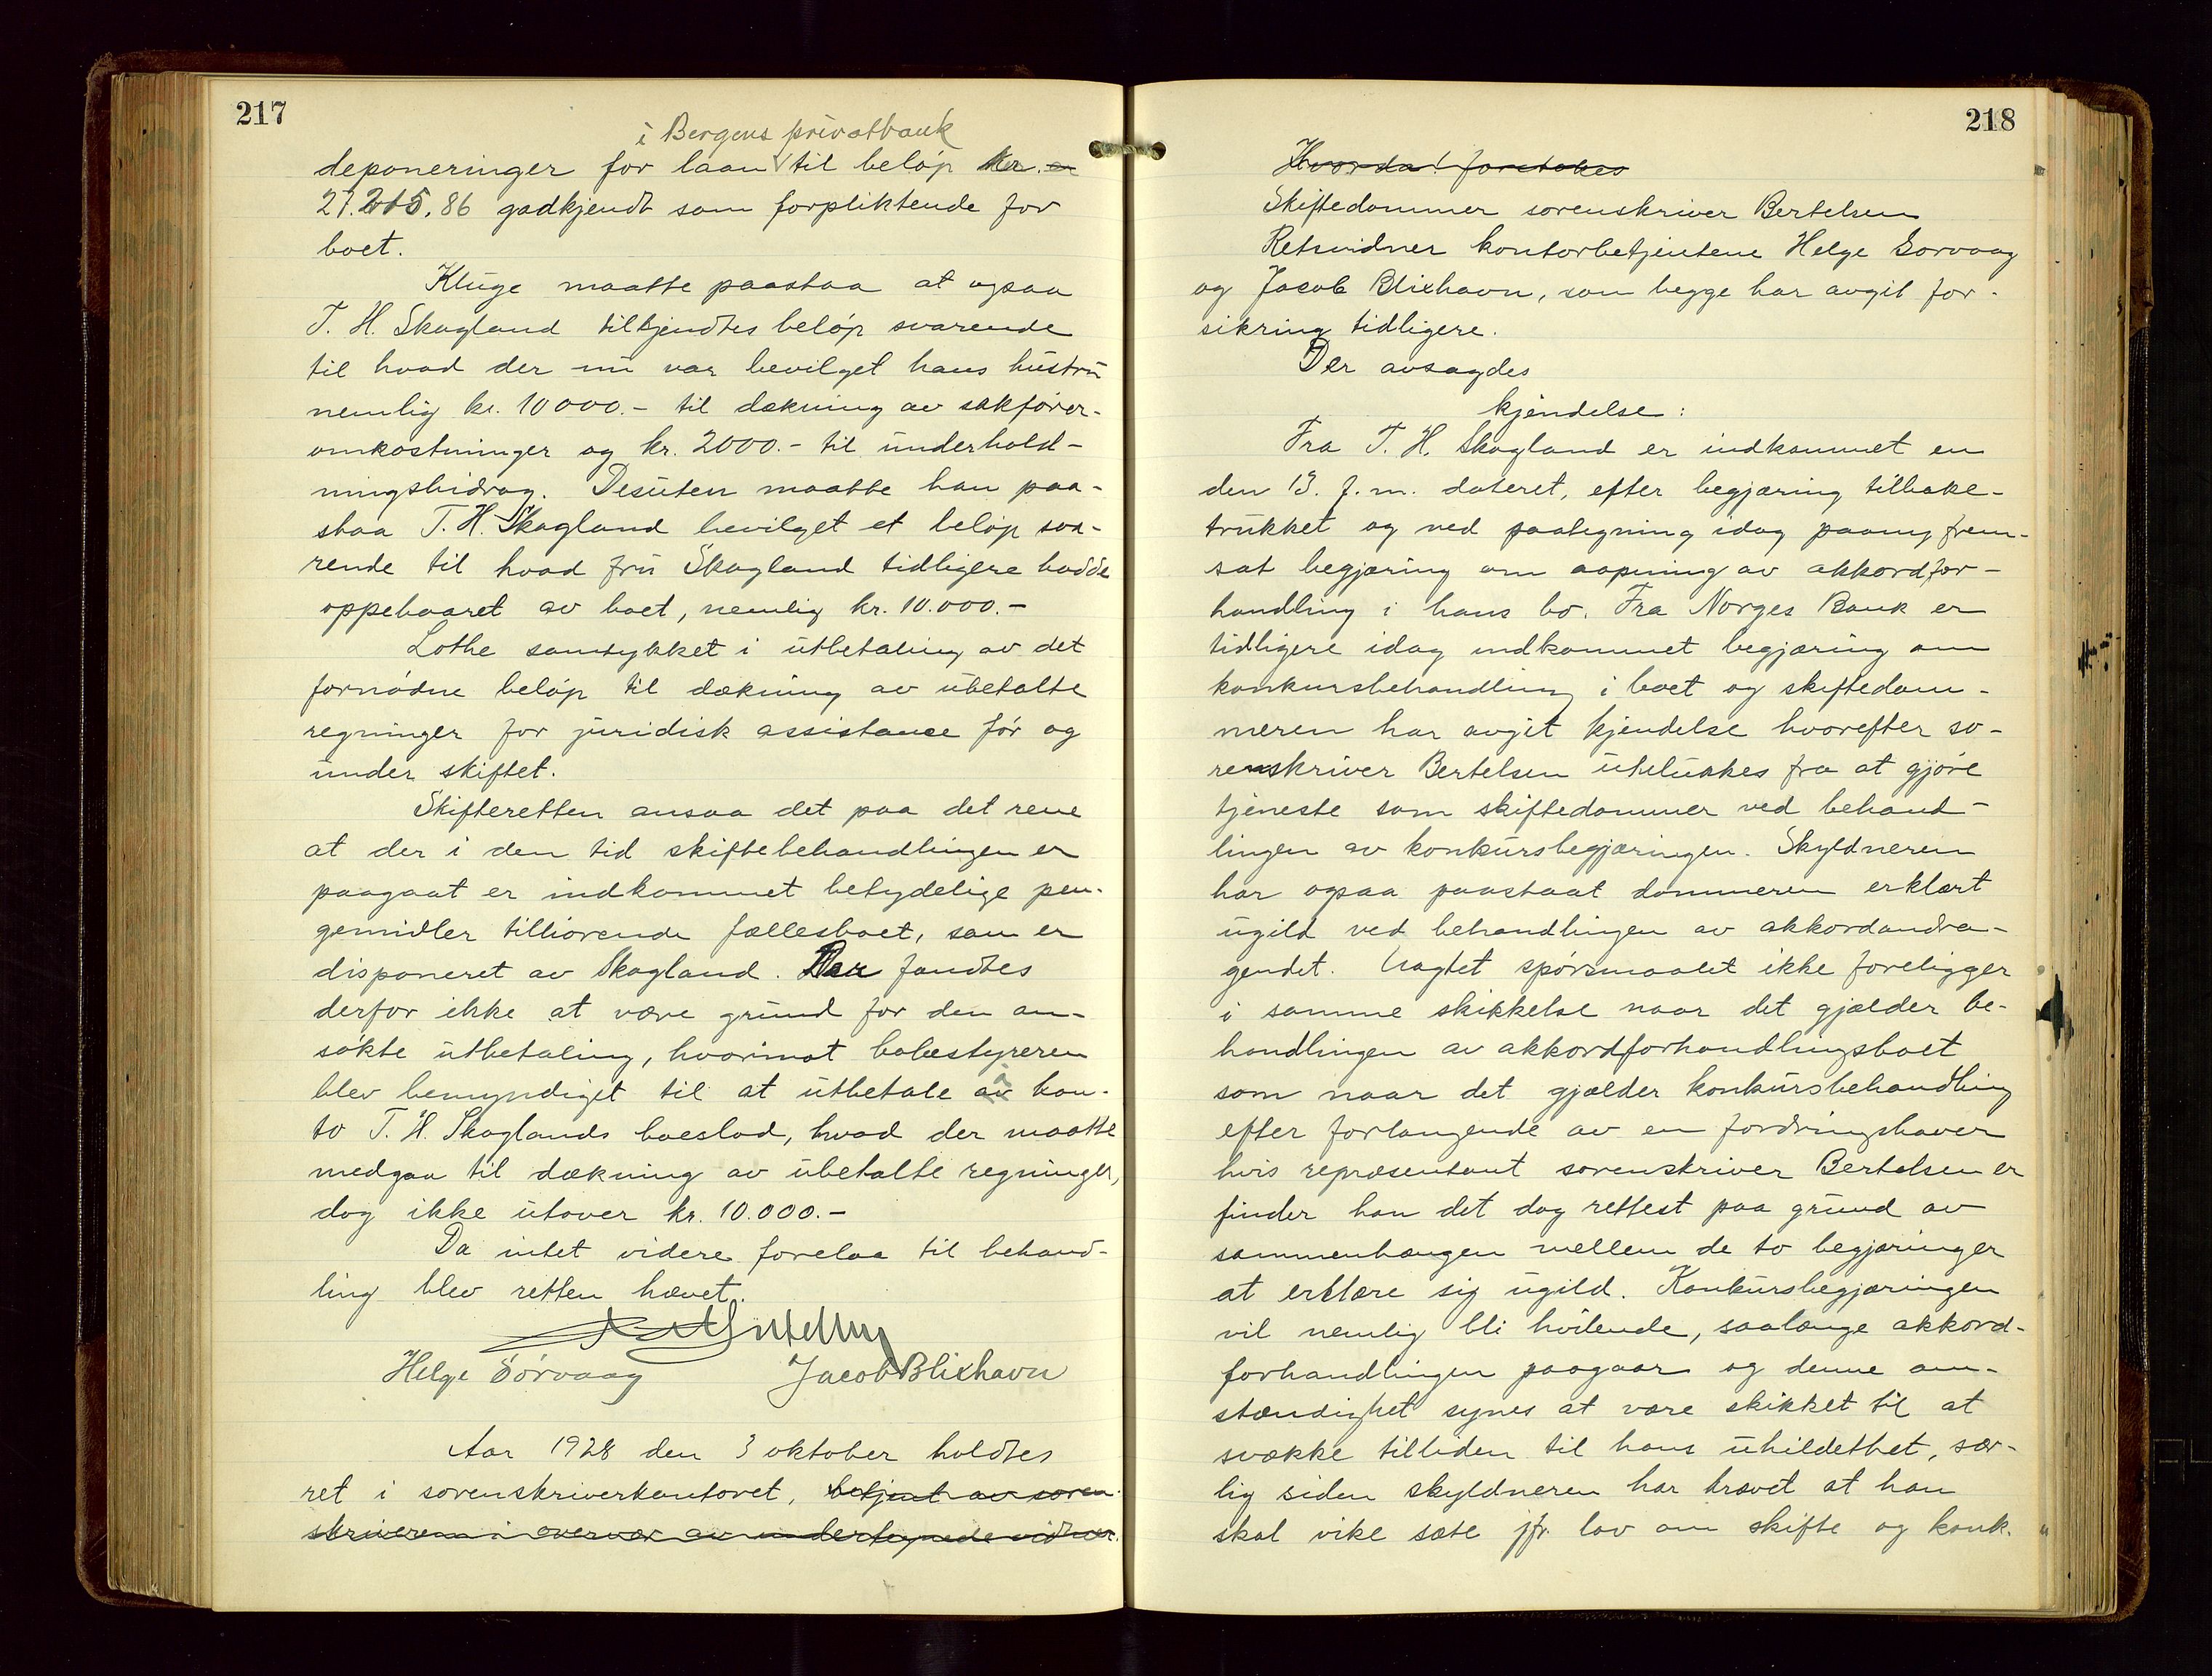 217
i Bergens privatbank
deponeringer for laan til beløp kr.
27.215,86 godkjendt som forpliktende for
boet.
Kluge maatte paastaa at ogsaa
T. H. Skogland tilkjendtes beløp svarende
til hvad der nu var bevilget hans hustru
nemlig kr. 10000.- til dækning av sakfører-
omkostninger og kr. 2000.- til underhold-
ningsbidrag. Desuten maatte han paa-
staa T. H. Skogland bevilget et beløp sva-
rende til hvad fru Skogland tidligere hadde
oppebaaret av boet, nemlig kr. 10.000.-
Lothe samtykket i utbetaling av det
fornødne beløp til dækning av ubetalte
regninger for juridisk assistance før og
under skiftet.
Skifteretten ansaa det paa det rene
at der i den tid skiftebehandlingen er
paagaat er indkommet betydelige pen-
gemidler tilhørende fællesboet, som er
disponeret av Skogland. Der fandtes
derfor ikke at være grund for den an-
søkte utbetaling, hvorimot bobestyreren
blev bemyndiget til at utbetale à kon-
to T. H. Skoglands boeslod, hvad der maatte
medgaa til dækning av ubetalte regninger,
dog ikke utover kr. 10.000.-
Da intet videre forelaa til behand-
ling blev retten hævet.
Helge Sørvaag Jacob Blixhavn
Aar 1928 den 3 oktober holdtes
ret i sorenskriverkontoret, betjent av soren-
skriveren i overvær av undertegnede vidner.
218
Hvorda! foretokes
Skiftedommer sorenskriver Bertelsen
Retsvidner kontorbetjentene Helge Sorvaag
og Jacob Blixhavn, som begge har avgit for-
sikring tidligere.
Der avsagdes
kjendelse:
Fra T. H. Skogland er indkommet en
den 13. f.m. dateret, efter begjæring tilbake-
trukket og ved paategning idag paany frem-
sat begjæring om aapning av akkordfor-
handling i hans bo. Fra Norges Bank er
tidligere idag indkommet begjæring om
konkursbehandling i boet og skiftedom-
meren har avgit kjendelse hvorefter so-
renskriver Bertelsen utelukkes fra at gjøre
tjeneste som skiftedommer ved behand-
lingen av konkursbegjæringen. Skyldneren
har ogsaa paastaat dommeren erklært
ugild ved behandlingen av akkordandra-
gendet. Uagtet spørsmaalet ikke foreligger
i samme skikkelse naar det gjælder be-
handlingen av akkordforhandlingsboet
som naar det gjælder konkursbehandling
efter forlangende av en fordringshaver
hvis repræsentant sorenskriver Bertelsen er
finder han det dog rettest paa grund av
sammenhængen mellem de to begjæringer
at erklære sig ugild. Konkursbegjæringen
vil nemlig bli hvilende, saalænge akkord-
forhandlingen paagaar og denne om-
stændighet synes at være skikket til at
svække tilliden til hans uhildethet, sær-
lig siden skyldneren har krævet at han
skal vike sæte jfr. lov om skifte og konk.